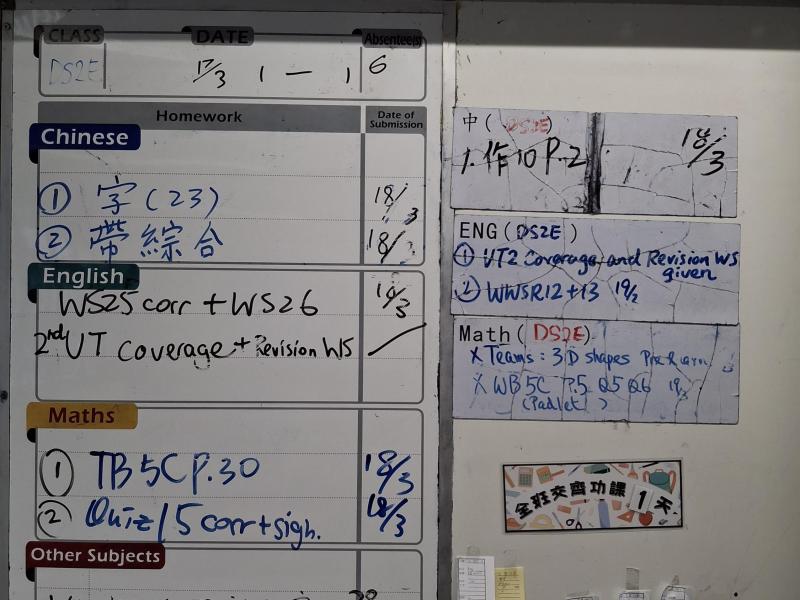 CLASS DATE Absentee(s)
DS2E 17/3 1 — 1 6
Homework Date of Submission
Chinese
① 字(23) 18/3
② 帶綜合 18/3
English
WS25 corr + WS26 19/3
2nd UT coverage + Revision WS
Maths
① TB 5C P.30 18/3
② Quiz 15 corr + sign. 18/3
Other Subjects
中( DS2E )
1. 作10 P.2 18/3
ENG (DS2E)
① UT2 Coverage and Revision WS
given
② WWSR12+13
Math( DS2E)
X Teams: 3D shapes
X WB 5C P.5 Q5 Q6 19/3
(Padlet )
全班交齊功課 1 天